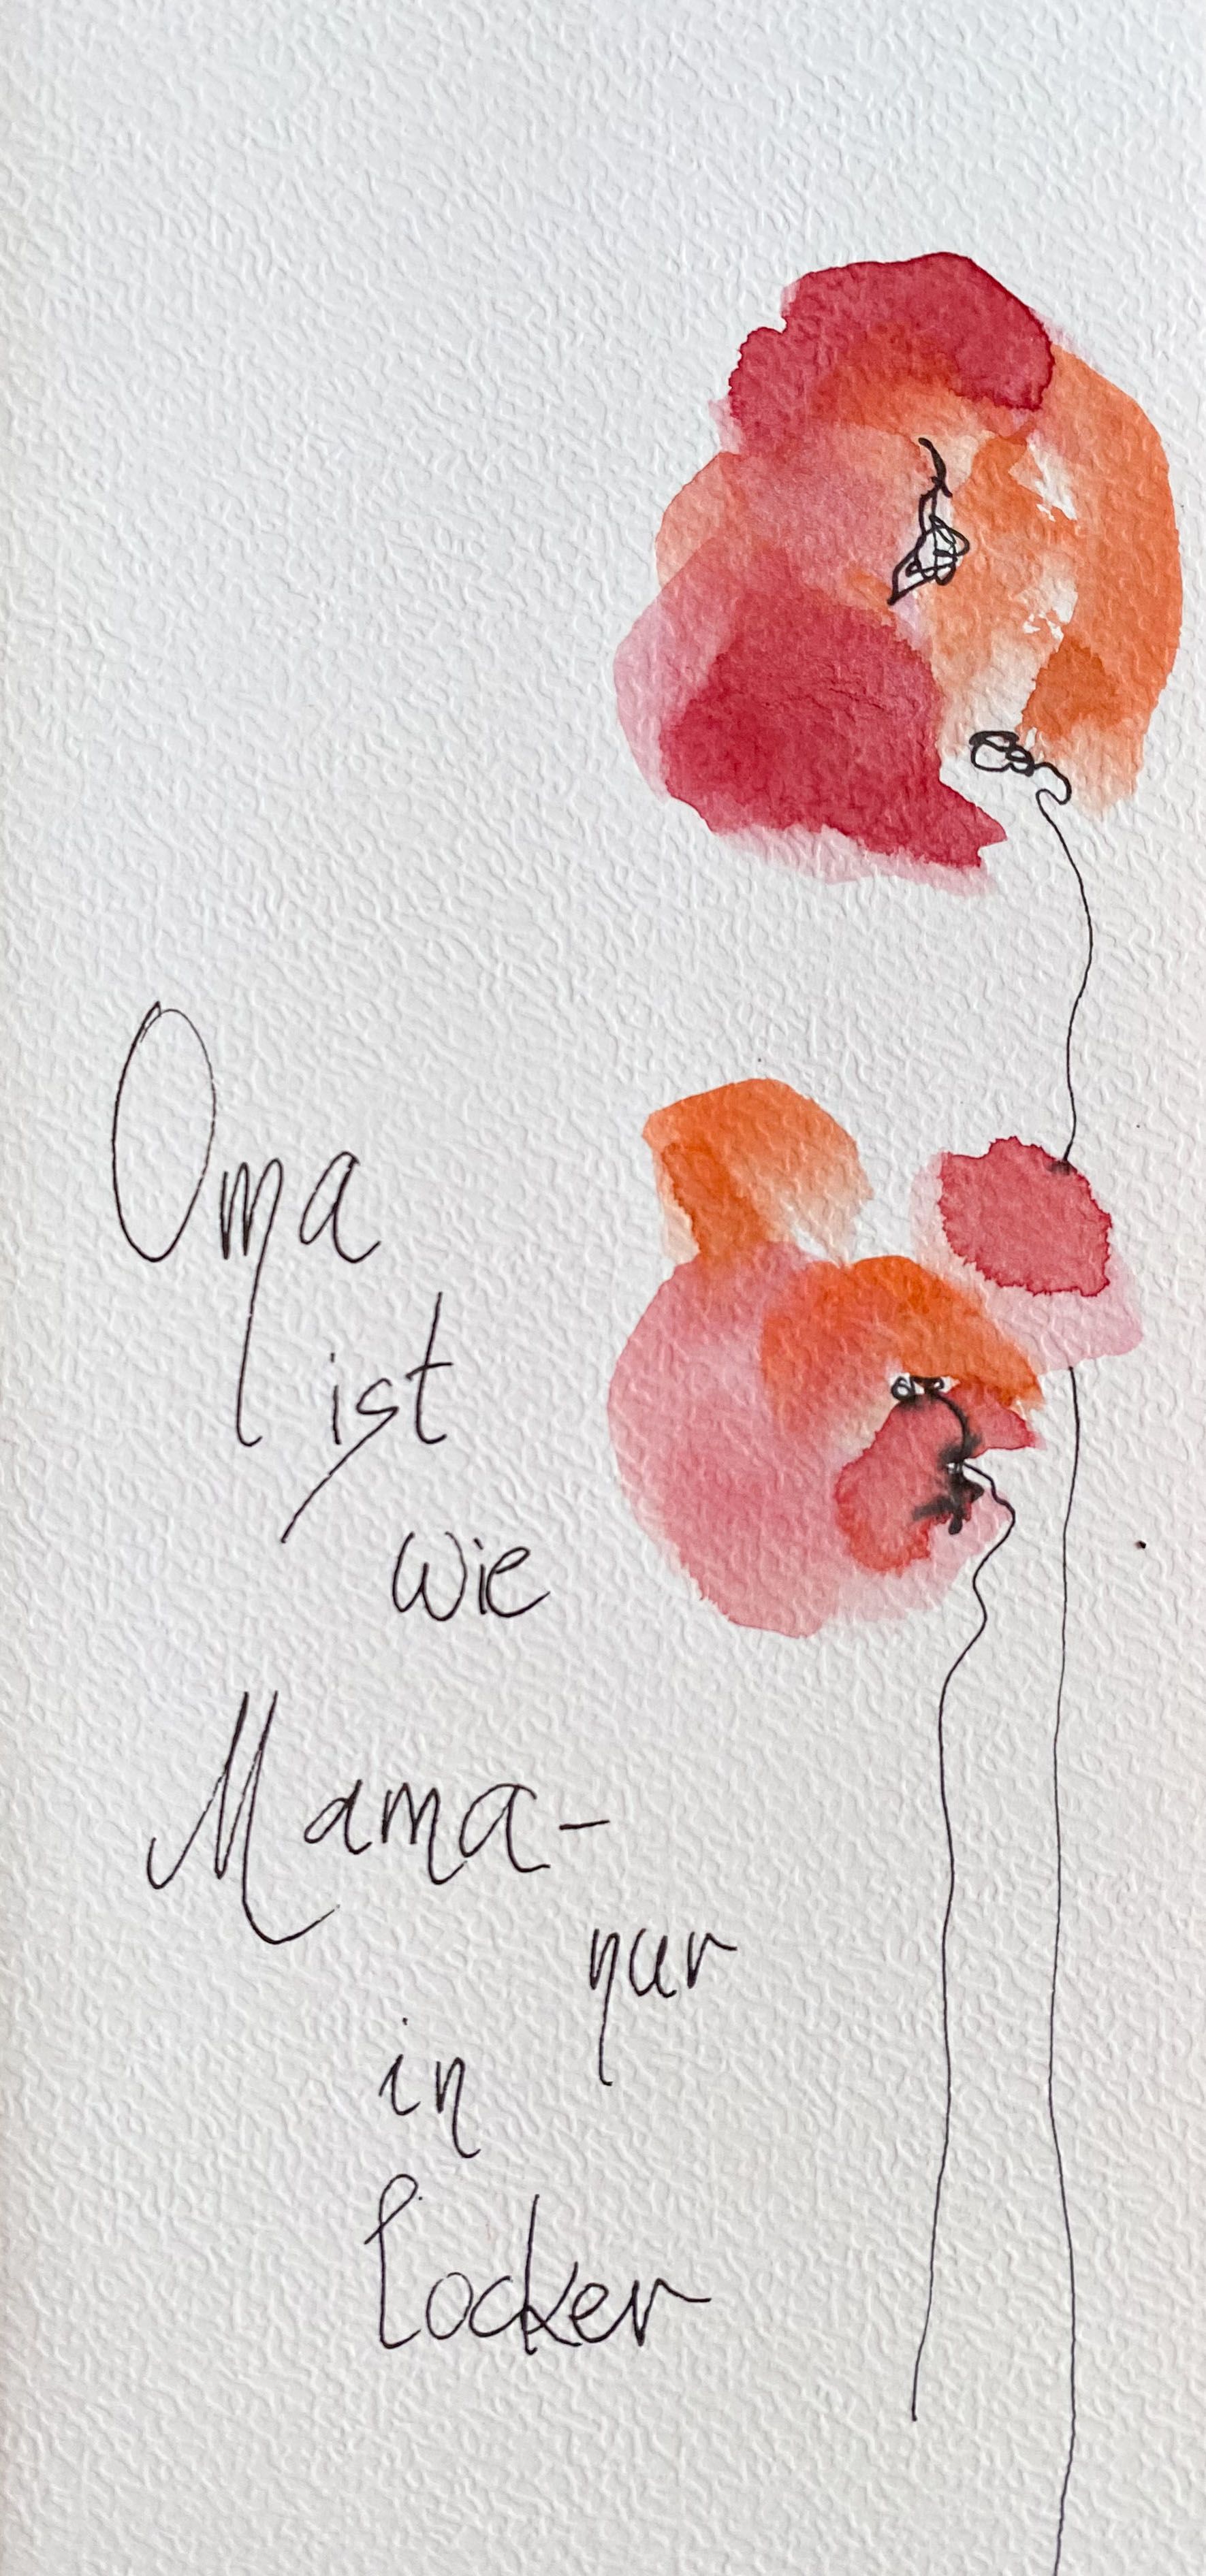 Oma
ist
wie
Mama-
nur
in
locker